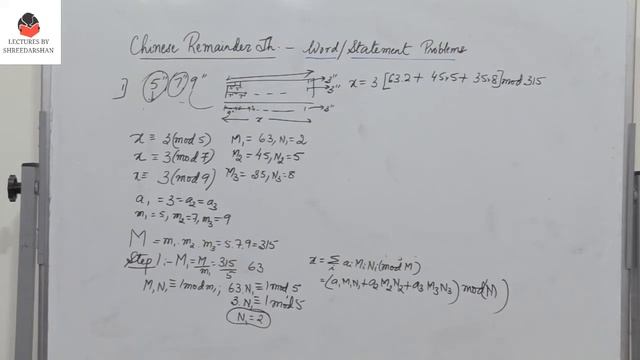 LECTURES BY
SHREEDARSHAN
Chinese Remainder Th. - Word/Statement Problems
1] 5" 7" 9"
3"
3"
x
x = 3 [63.2 + 45.5 + 35.8] mod 315
x ≡ 3 (mod 5)
x ≡ 3 (mod 7)
x ≡ 3 (mod 9)
M₁ = 63, N₁ = 2
M₂ = 45, N₂ = 5
M₃ = 35, N₃ = 8
a₁ = 3 = a₂ = a₃
m₁ = 5, m₂ = 7, m₃ = 9
M = m₁ . m₂ . m₃ = 5.7.9 = 315
Step 1 :- M₁ = M/m₁ = 315/5 63
M₁N₁ ≡ 1 mod m₁ ; 63.N₁ ≡ 1 mod 5
3.N₁ ≡ 1 mod 5
N₁ = 2
x = Σ aᵢ Mᵢ Nᵢ (mod M)
= (a₁M₁N₁ + a₂M₂N₂ + a₃M₃N₃) mod(M)